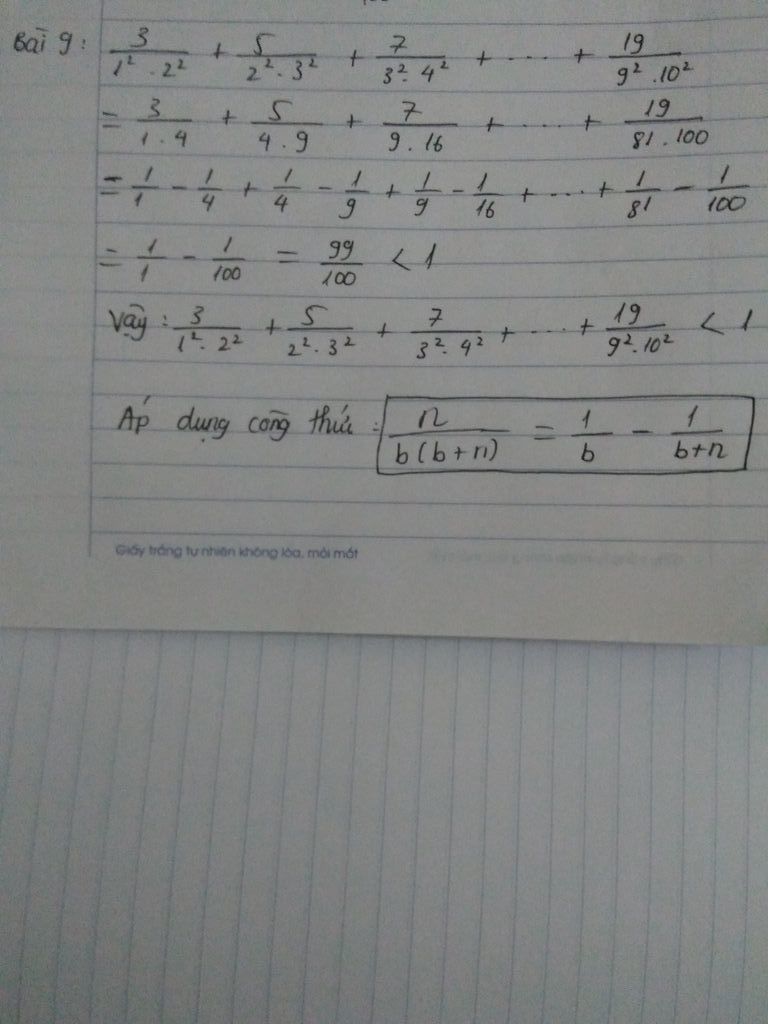 Bài 9: 3/(1² . 2²) + 5/(2² . 3²) + 7/(3² . 4²) + ... + 19/(9² . 10²)
= 3/(1 . 4) + 5/(4 . 9) + 7/(9 . 16) + ... + 19/(81 . 100)
= 1/1 - 1/4 + 1/4 - 1/9 + 1/9 - 1/16 + ... + 1/81 - 1/100
= 1/1 - 1/100 = 99/100 < 1
Vậy: 3/(1² . 2²) + 5/(2² . 3²) + 7/(3² . 4²) + ... + 19/(9² . 10²) < 1
Áp dụng công thức: n/(b(b+n)) = 1/b - 1/(b+n)
Giấy trắng tự nhiên không lóa, mỏi mắt